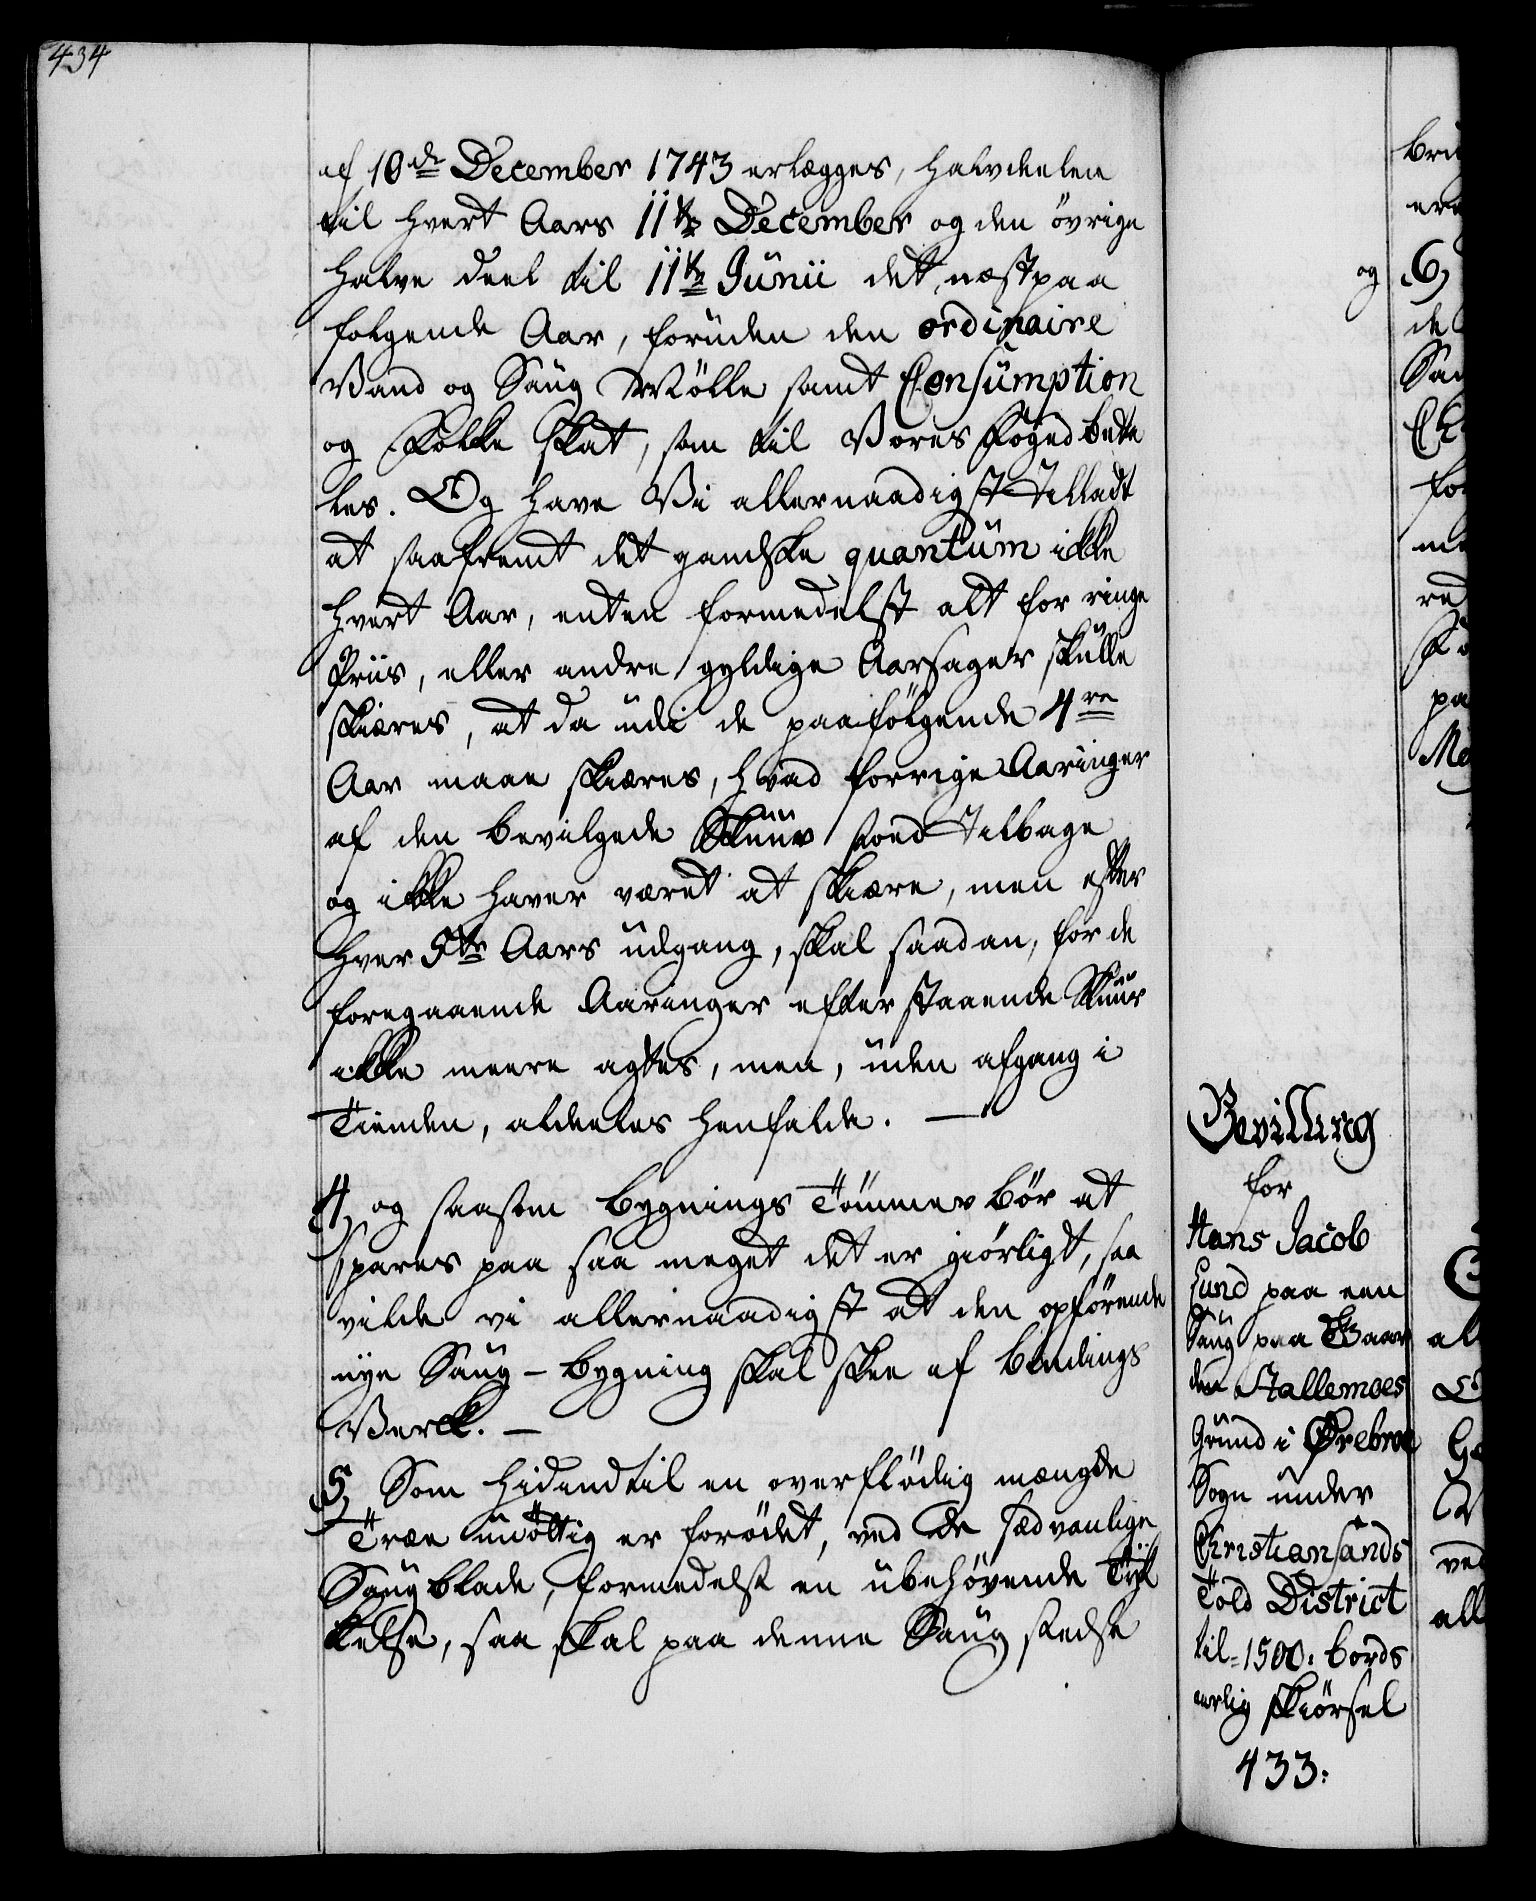 434
af 10de December 1743 erlægges, halvdeelen
til hvert Aars 11te December og den övrige
halve deel til 11te Junii det næstpaa
folgende Aar, foruden den ordinaire
Vand og Saug Mölle samt Consumption
og Folke Skat, som til Vores Foged beta
les. Og have Vi allernaadigst Tilladt
at saafremt det gandske quantum ikke
hvert Aar, enten formedelst alt for ringe
Priis, eller andre gyldige Aarsager skulle
skiæres, at da udi de paafölgende 4re
Aar maae skiæres, hvad forrige Aaringer
af den bevilgede Skuur stoed Tilbage
og ikke haver været at skiære, men efter
hver 5te Aars udgang, skal saadan, for de
foregaaende Aaringer efterstaaende Skuur
ikke meere agtes, men, uden afgang i
Tienden, aldeeles henfalde. —
4, og saasom bygnings Tömmer bör at
spares paa saa meget det er giörligt, saa
vilde vi allernaadigst at den opförende
nye Saug-bygning skal skee af bindings
Verck. —
5, Som hidindtil en overflödig mængde
Træe unöttig er forödet, ved de sædvanlige
Saugblade, formedelst en ubehövende Tyk
kelse, saa skal paa denne Saug stedse
Bevilling
for
Hans Jacob
Lund paa een
Saug paa Gaar
den Stallemoes
Grund i Örebroe
Sogn under
Christiansands
Told District
til 1500: bords
aarlig Skiörsel
433:
og
6,
de